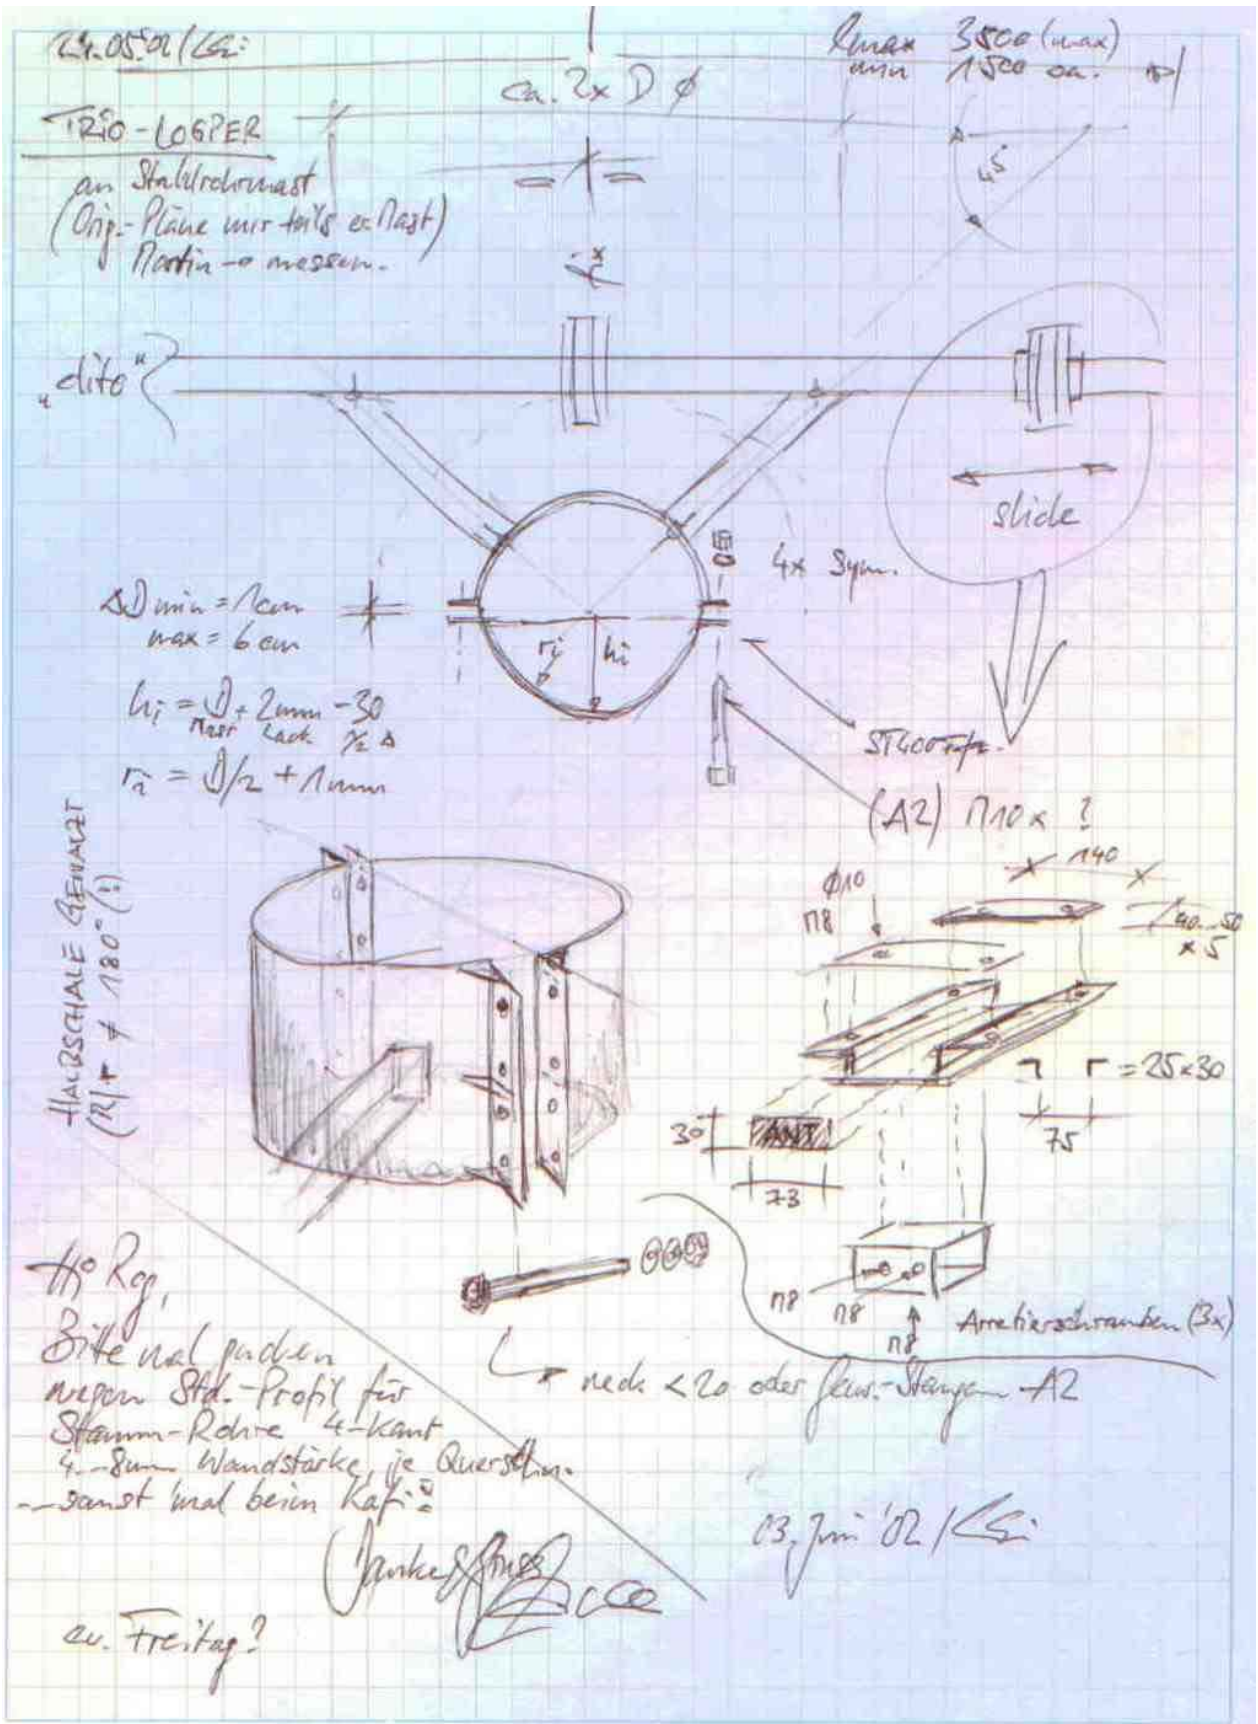 Lmax 3500 (max)
min 1500 ca.
ca. 2x D ϕ
TRIO-LOGPER
an Stahlrohrmast
(Orig.-Pläne nur teils er Mast)
Martin → messen.
45°
x
"dito"
slide
4x Sym.
ΔD min = 1cm
max = 6 cm
ri
hi
hi = D + 2mm - 30
Mast Lack ½ Δ
ri = D/2 + 1mm
(A2) M10 x ?
HALBSCHALE GEWALZT
(R)/r ≠ 180° (!)
140
ϕ10
M8
40...50
x 5
= 25x30
75
30
ANT
73
M8
M8
M8
Arretierschrauben (3x)
oder Gew.-Stangen A2
Bitte mal gucken
wegen Std.-Profil für
Stamm-Rohre 4-Kant
4...8mm Wandstärke, je Querschn.
...sonst mal beim Kafi
03. Juni '02 /
ev. Freitag?